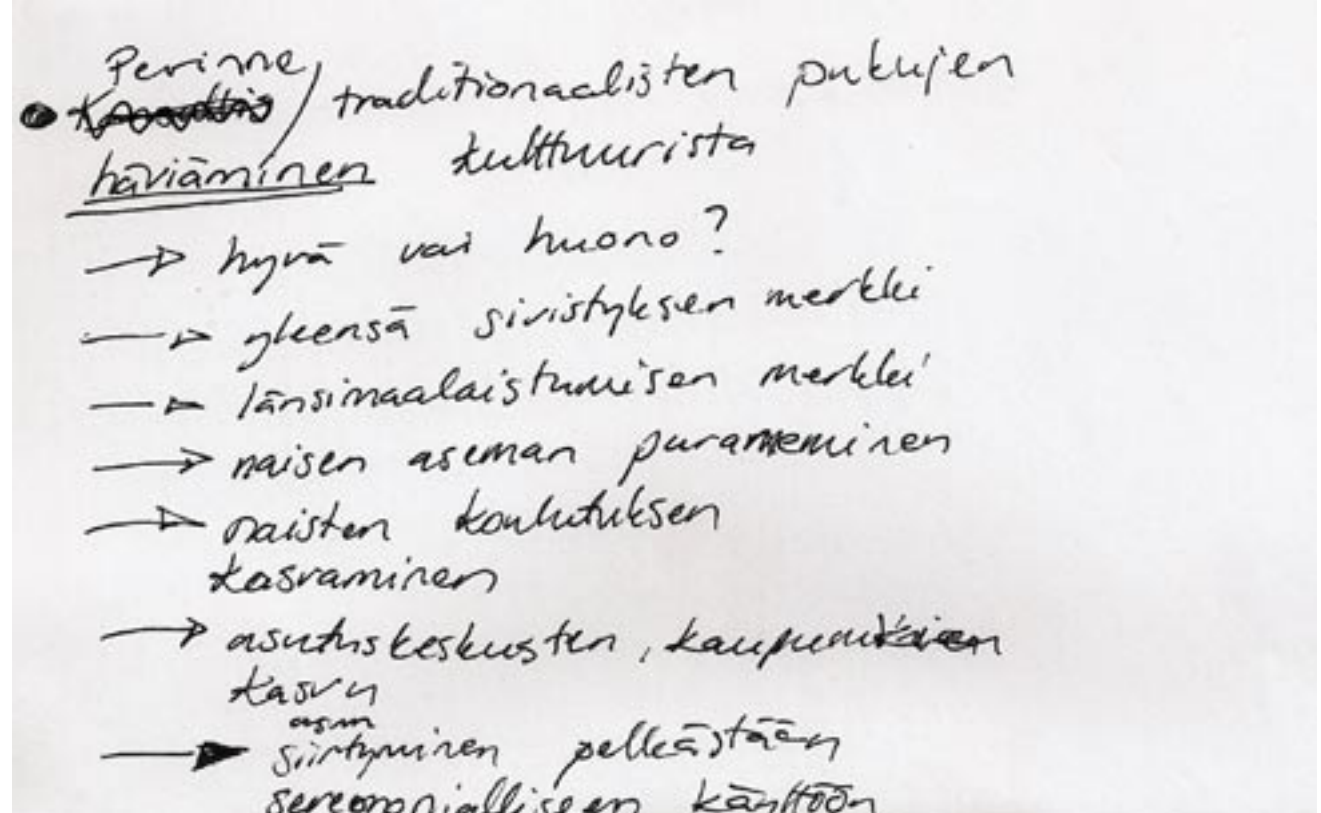 Perinne/
traditionaalisten pukujen
häviäminen kulttuurista
→ hyvä vai huono?
→ yleensä sivistyksen merkki
→ länsimaalaistumisen merkki
→ naisen aseman paraneminen
→ naisten koulutuksen
kasvaminen
→ asutuskeskusten,
kasvu
asun
→ siirtyminen pelkästään
seremonialliseen käyttöön